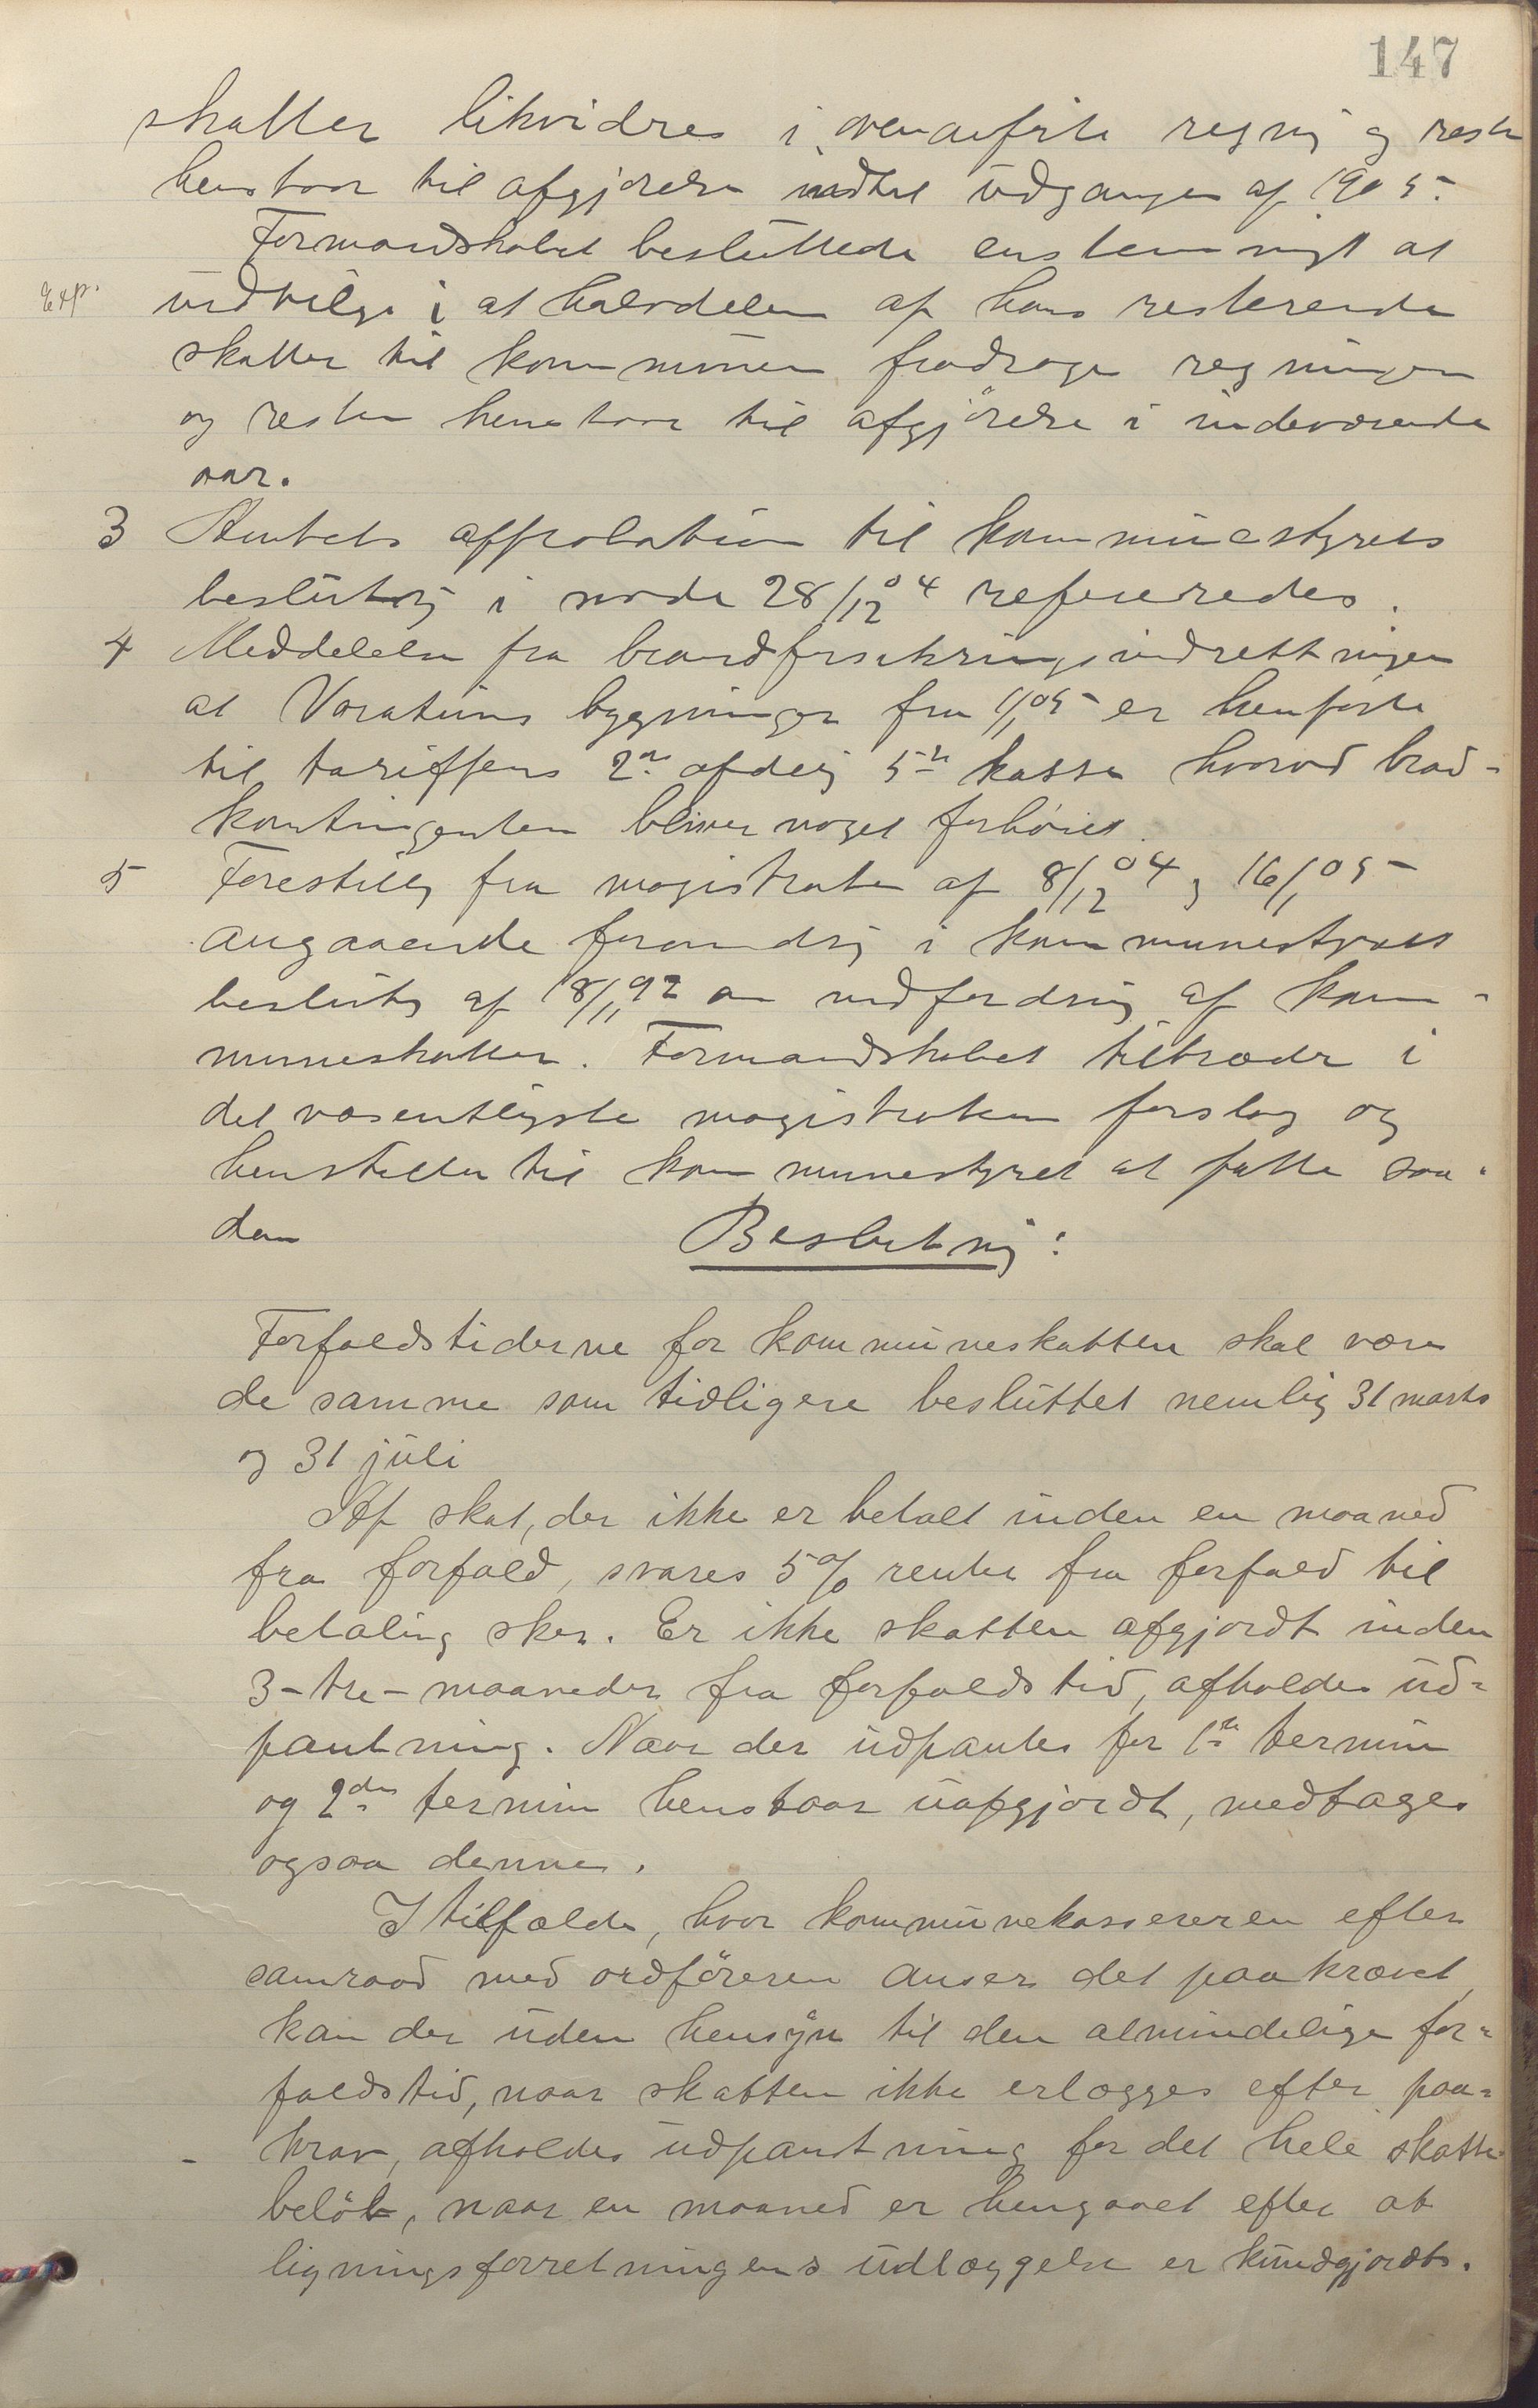 147
skatter likvidres i ovenanførte regnig og resten
henstaar til afgjørelse indtil udgangen af 1905.
Formandskabet besluttede enstemmigt at
Exp. indvilge i at halvdelen af hans resterende
skatter til kommunen fradrages regningen
og resten henstaar til afgjørelse i indeværende
aar.
3 Amtets approbation til kommunestyrets
beslutnig i møde 28/12 04 refereredes.
4 Meddelelse fra brandforsikringsindretningen
at bygninger fra 1/1 05 er henførte
til tariffens 2den afdelig 5te klasse hvorved brand-
kontingenten bliver noget forhøiet.
5 Forestillig fra magistraten af 8/12 04 og 16/1 05
angaaende forandrig i kommunestyrets
beslutnig af 18/11 92 om indfordrig af kom-
muneskatten. Formandskabet tiltræder i
det væsentligste magistratens forslag og
henstiller til kommunestyret at fatte saa-
dan Beslutnig:
Forfaldstiderne for kommuneskatten skal være
de samme som tidligere besluttet nemlig 31 marts
og 31 juli
Af skat, der ikke er betalt inden en maaned
fra forfald, svares 5% rente fra forfald til
betaling sker. Er ikke skatten afgjordt inden
3-tre-maaneder fra forfaldstid, afholdes ud-
pantning. Naar der udpantes for 1ste termin
og 2den termin henstaar uafgjordt, medtages
ogsaa denne.
I tilfælde, hvor kommunekassereren efter
samraad med ordføreren anser det paakrævet,
kan der uden hensyn til den almindelige for-
faldstid, naar skatten ikke erlægges efter paa-
krav, afholdes udpantning for det hele skatte-
beløb, naar en maaned er hengaaet efter at
ligningsforretningens udlæggelse er kundgjordt.